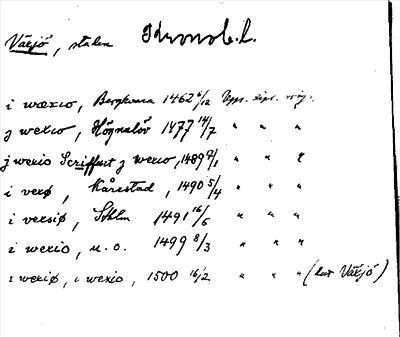 Växjö, staden Kronob. l.
i wæxio, Bergkvara 1462 6/12 Upps. dipl. orig.
j wexio, Högnalöv 1477 14/7 " " "
j wexio Scriffuet j wexio, 1489 2/1 " " "
i verø, Kårestad, 1490 5/4 " " "
i versiø, Sthlm 1491 16/6 " " "
i wexio, u. o. 1499 8/3 " " "
i wexiø, i wexio, 1500 16/2 " " " (lat Växjö)